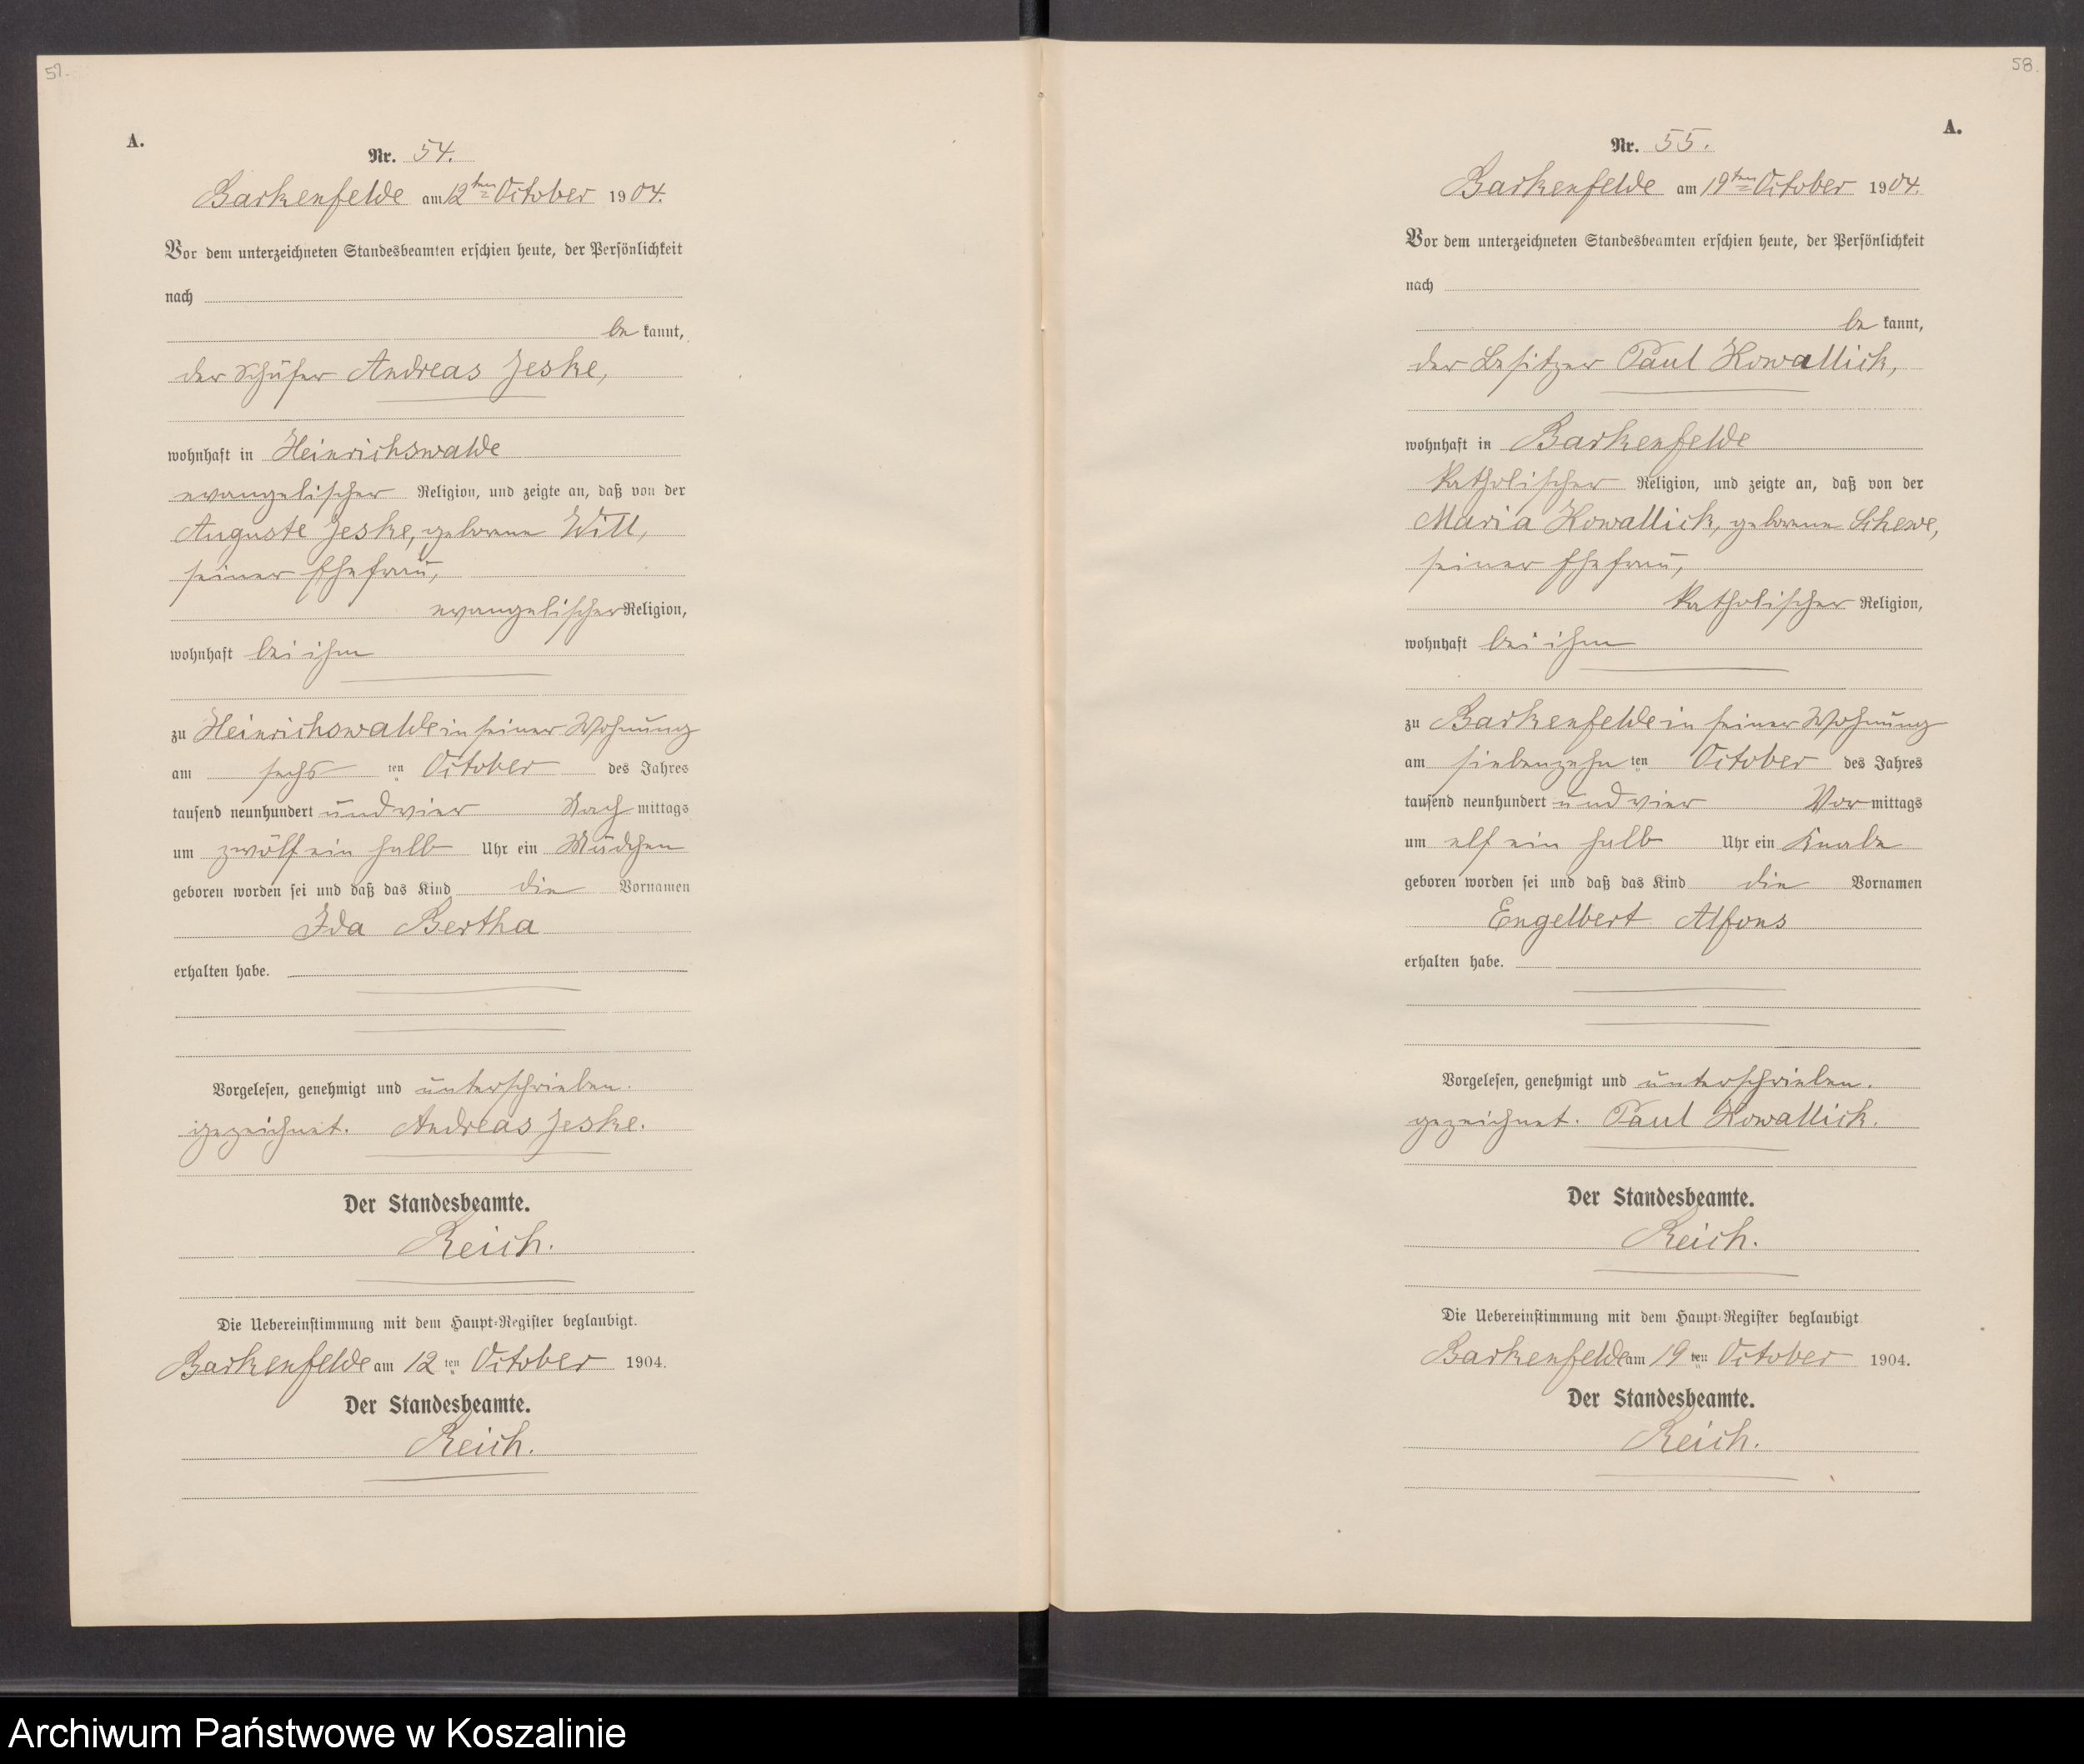 57.
A.
Nr. 54.
Barkenfelde am 12ten October 1904.
Vor dem unterzeichneten Standesbeamten erschien heute, der Persönlichkeit
nach
be kannt,
der Schäfer Andreas Jeske,
wohnhaft in Heinrichswalde
evangelischer Religion, und zeigte an, daß von der
Auguste Jeske, geborene Will,
seiner Ehefrau,
evangelischer Religion,
wohnhaft bei ihm
zu Heinrichswalde in seiner Wohnung
am sechs ten October des Jahres
tausend neunhundert und vier Nach mittags
um zwölf ein halb Uhr ein Mädchen
geboren worden sei und daß das Kind die Vornamen
Ida Bertha
erhalten habe.
Vorgelesen, genehmigt und unterschrieben.
gezeichnet. Andreas Jeske.
Der Standesbeamte.
Reich.
Die Uebereinstimmung mit dem Haupt-Register beglaubigt.
Barkenfelde am 12 ten October 1904.
Der Standesbeamte.
Reich.
58.
A.
Nr. 55.
Barkenfelde am 19ten October 1904.
Vor dem unterzeichneten Standesbeamten erschien heute, der Persönlichkeit
nach
be kannt,
der Besitzer Paul Kowallick,
wohnhaft in Barkenfelde
katholischer Religion, und zeigte an, daß von der
Maria Kowallick, geborene Schewe,
seiner Ehefrau,
katholischer Religion,
wohnhaft bei ihm
zu Barkenfelde in seiner Wohnung
am siebenzehn ten October des Jahres
tausend neunhundert und vier Vor mittags
um elf ein halb Uhr ein Knabe
geboren worden sei und daß das Kind die Vornamen
Engelbert Alfons
erhalten habe.
Vorgelesen, genehmigt und unterschrieben.
gezeichnet. Paul Kowallick.
Der Standesbeamte.
Reich.
Die Uebereinstimmung mit dem Haupt-Register beglaubigt
Barkenfelde am 19 ten October 1904.
Der Standesbeamte.
Reich.
Archiwum Państwowe w Koszalinie